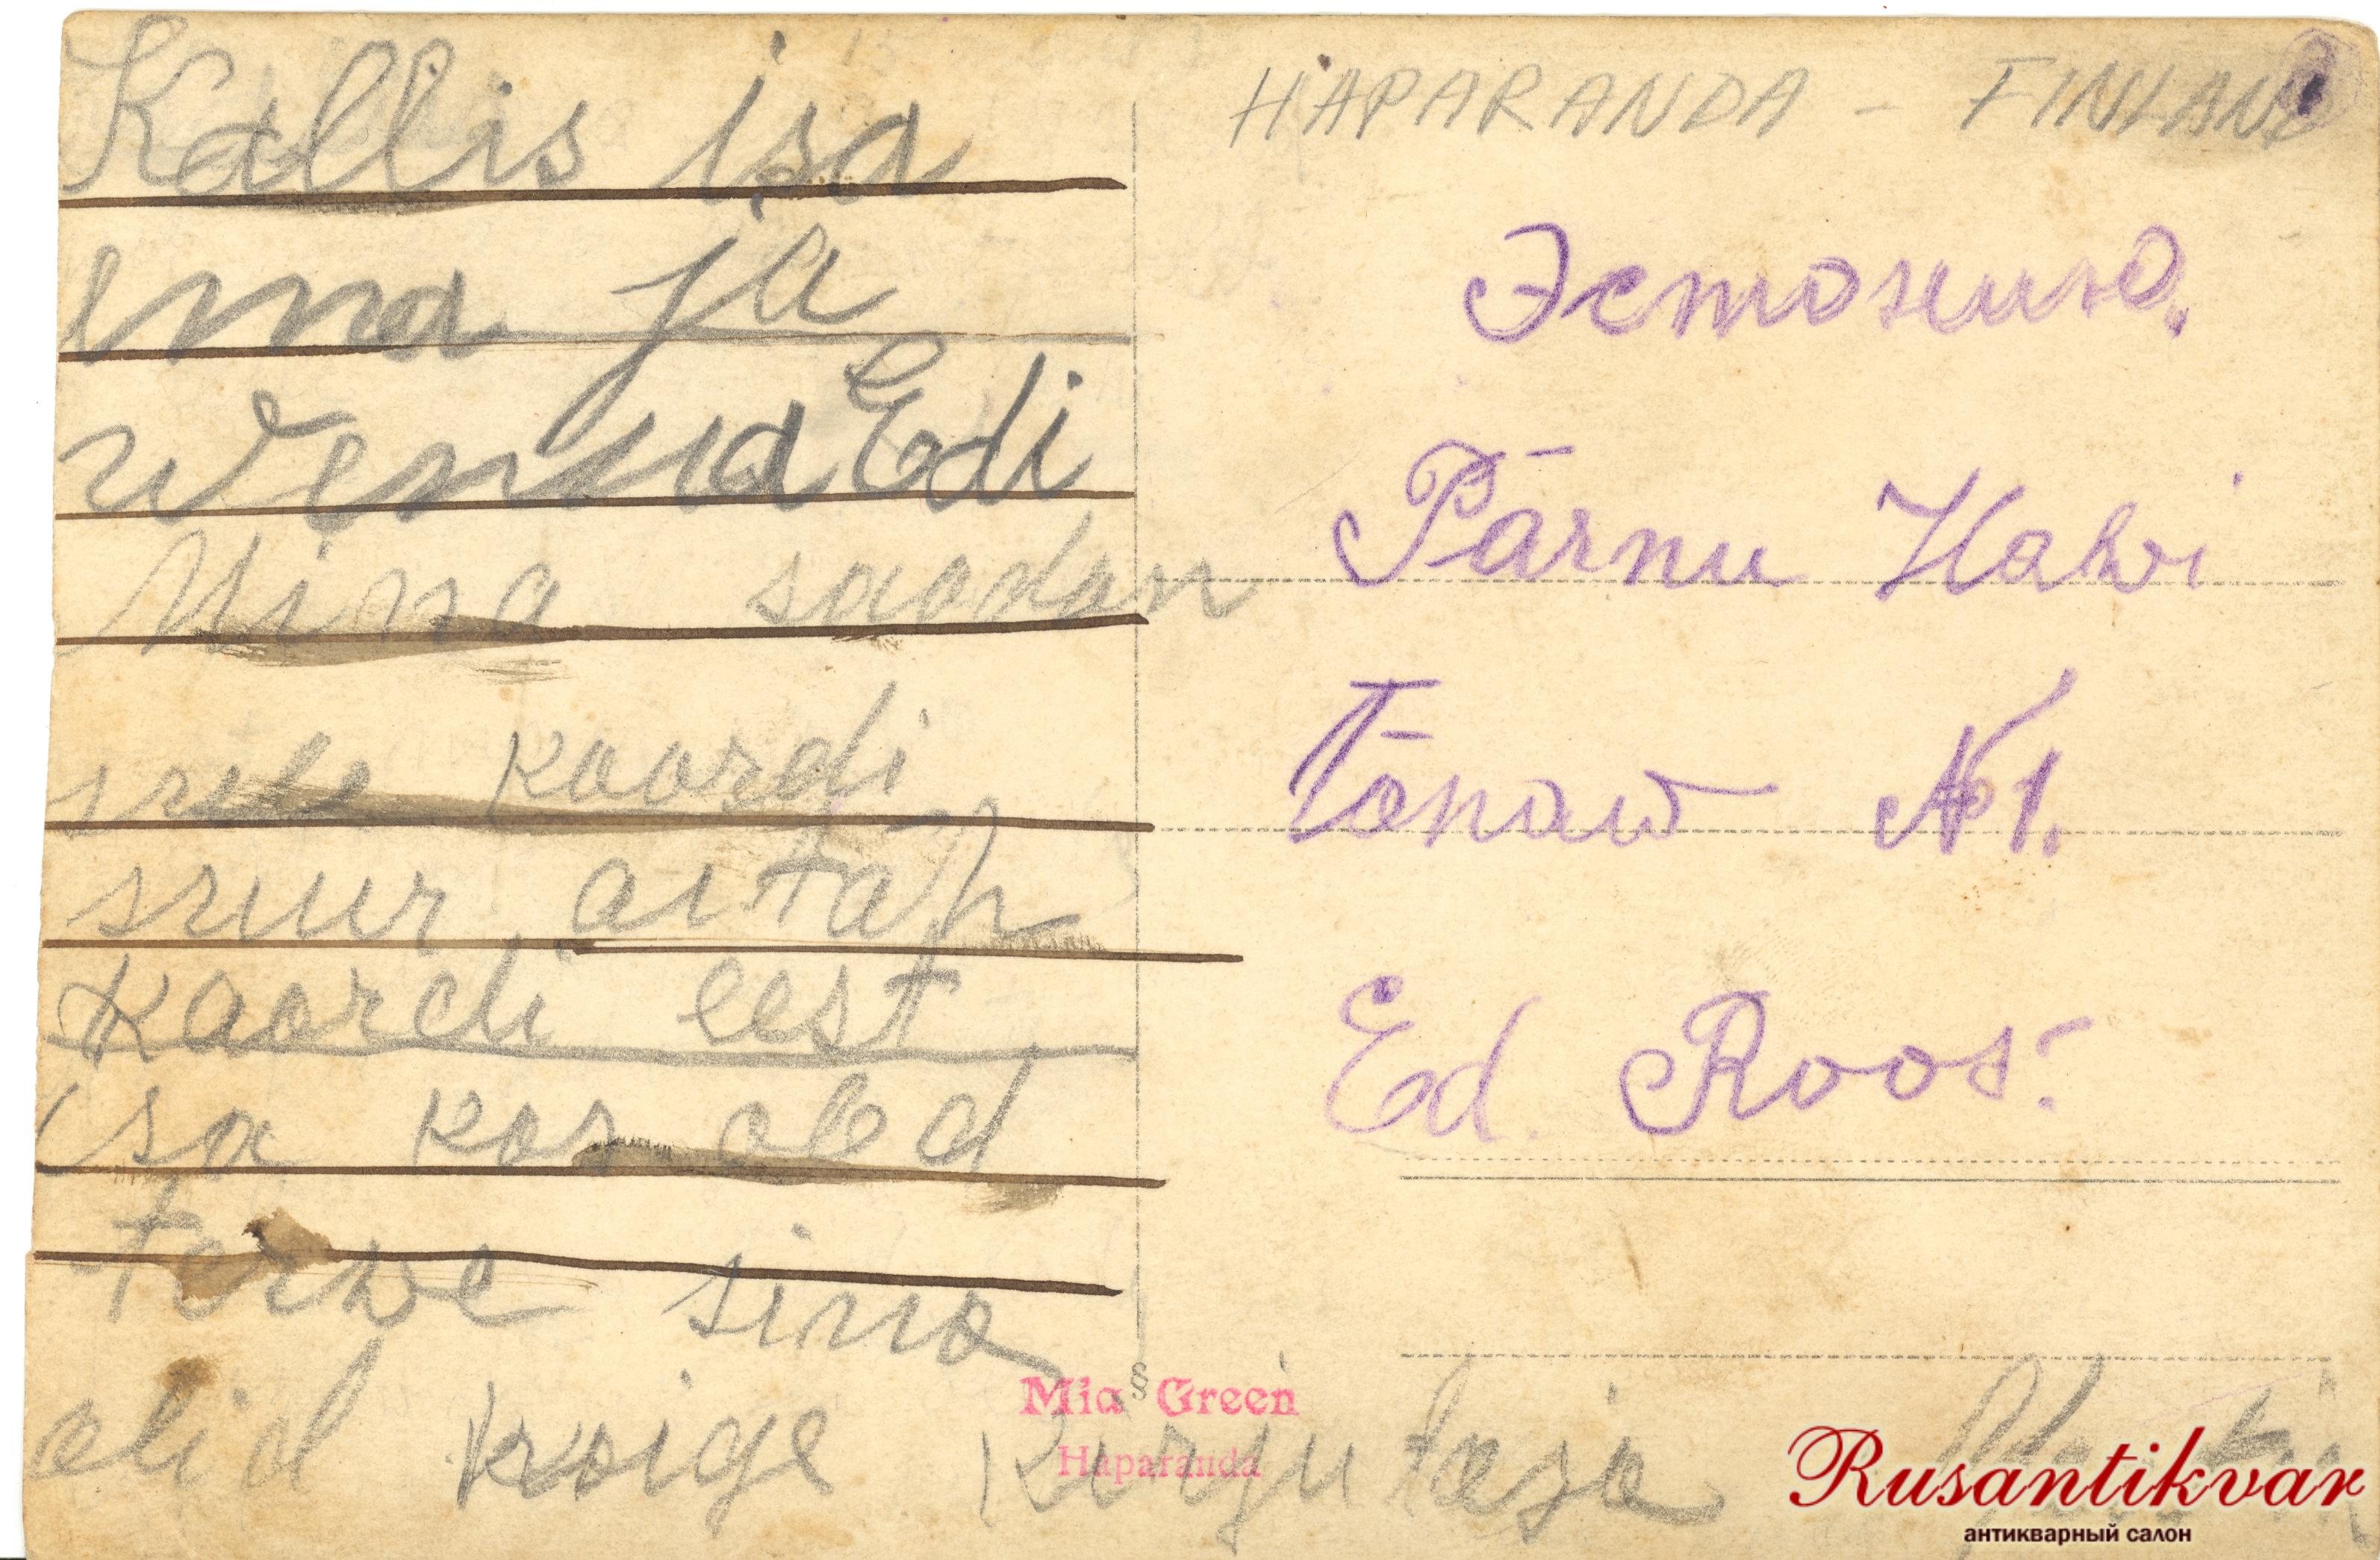 Kallis isa
ema ja
Wenna Edi
Mina saadan
sulle kaardi
suur aitäh
kaardi eest
isa kas oled
terwe sina
olid kõige kirjutaja
HAPARANDA - FINLAND
Эстония.
Pärnu Kalwi
Tänaw № 1.
Ed. Roos.
Mia Green
Haparanda
Rusantikvar
антикварный салон